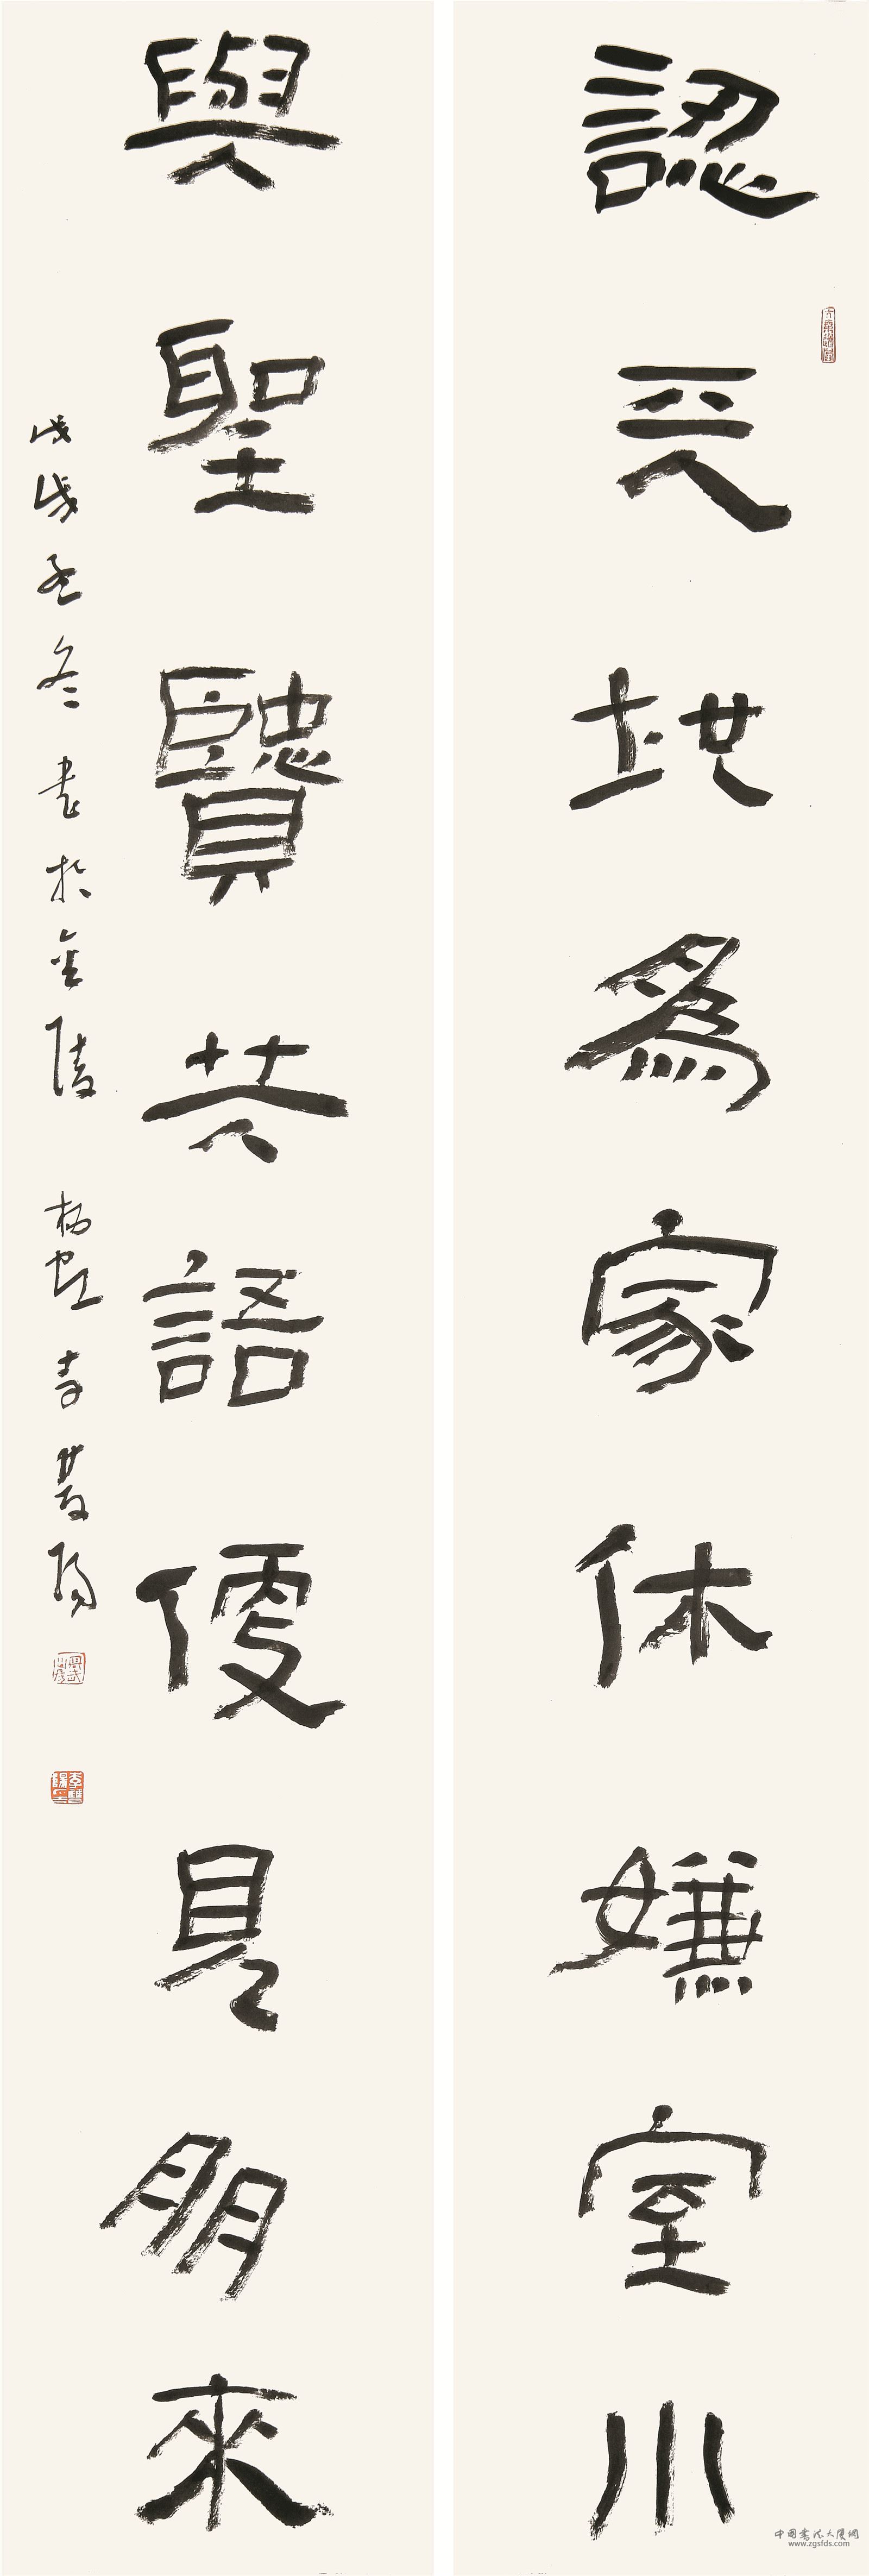 認天地為家休嫌室小
與聖賢共語便見朋來
戊戌孟冬書於金陵 栖霞寺 雙陽
中国書法大厦網
www.zgsfds.com